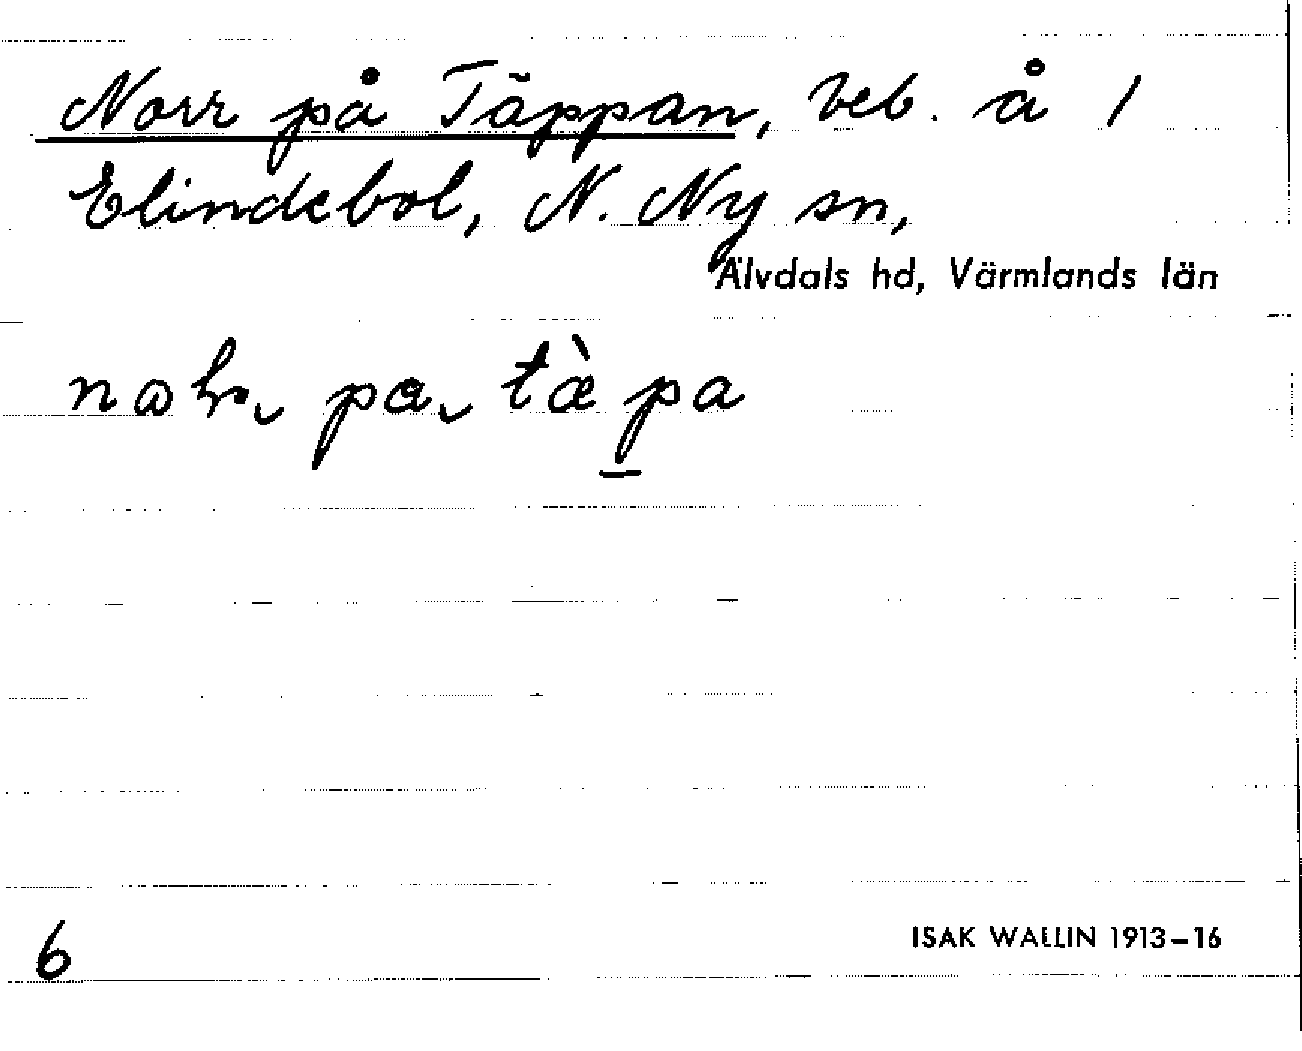 Norr på Täppan, beb. å 1
Elindebol, N. Ny sn,
Älvdals hd, Värmlands län
pa tæ̀pa
6
ISAK WALLIN 1913–16